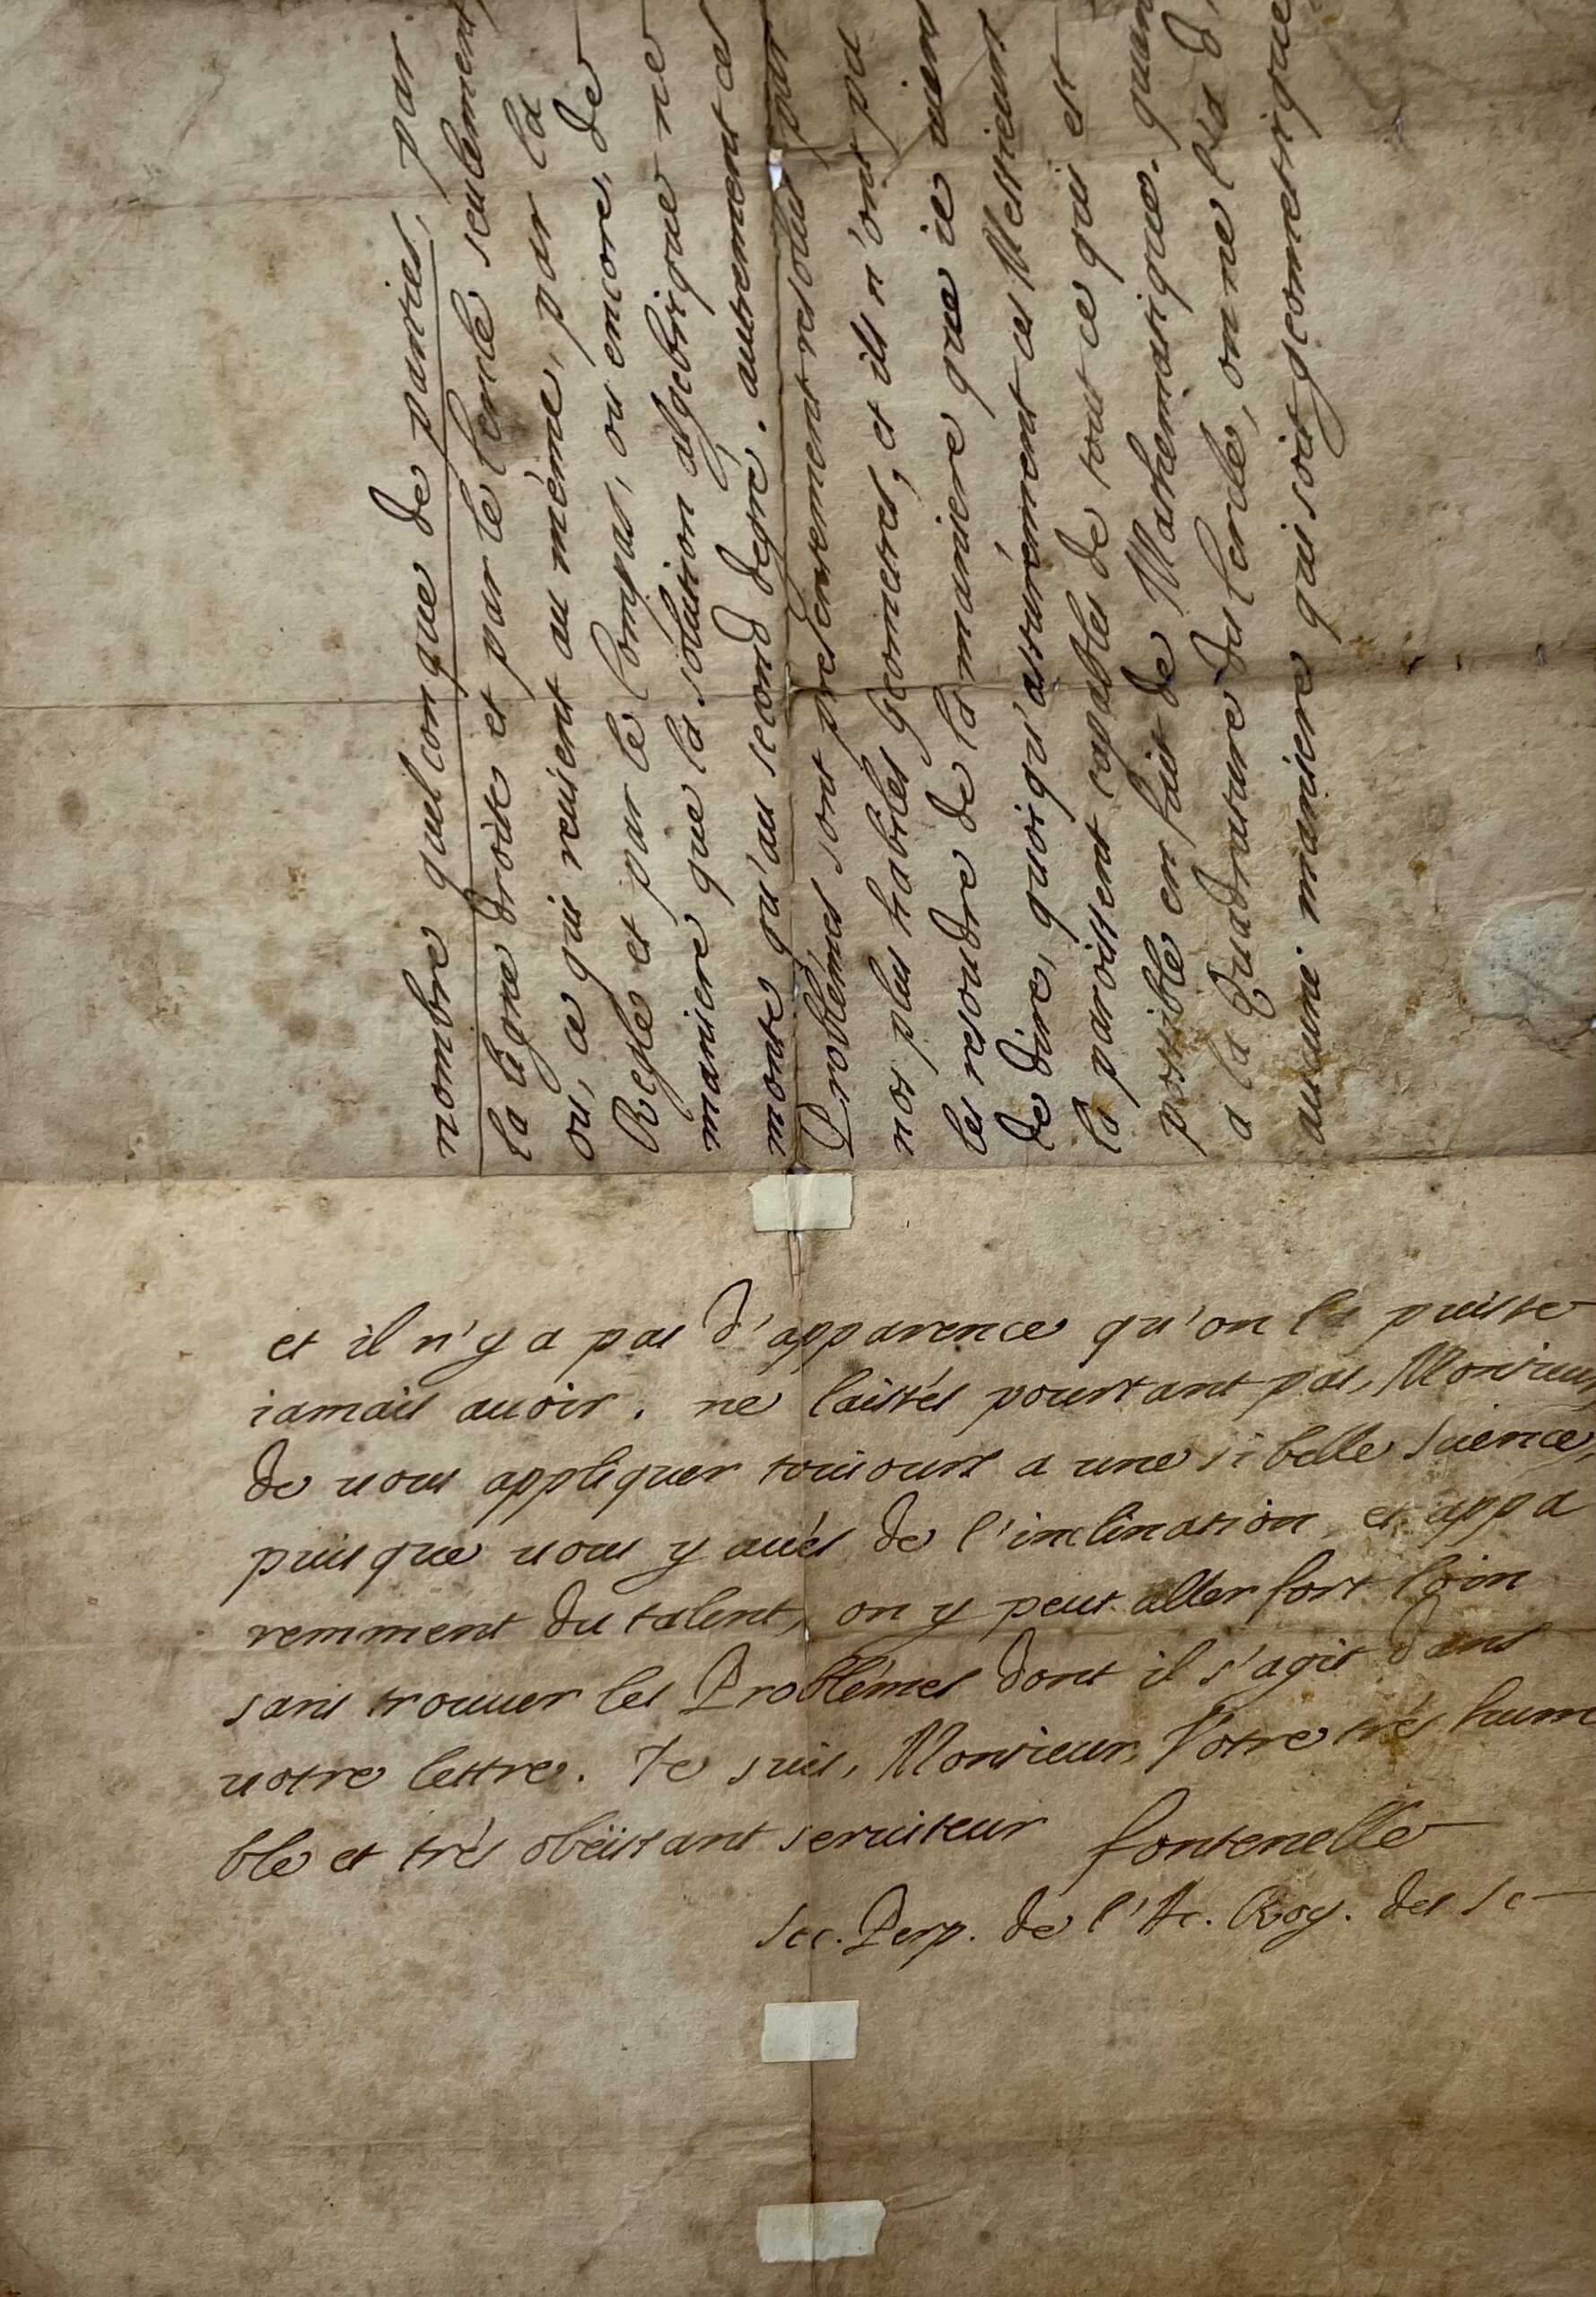 nombre quelconque de parties, par
la ligne droite et par le Cercle seulement,
ou, ce qui revient au même, par la
Regle et par le Compas, ou encore, de
maniere que la solution algebrique ne
monte qu'au second degré. autrement ces
Problêmes sont presentement resolus par
nos plus habiles Geometres, et ils n'ont pa
les resoudre de la maniere que ie viens
de dire, quoiqu'assurément ces Messieurs
la paroissent capables de tout ce qui est
possible en fait de Mathematique. quan
a la Quadrature du Cercle, on ne l'a d
aucune maniere qui soit geometrique
et il n'y a pas d'apparence qu'on la puisse
iamais auoir. ne laissés pourtant pas, Monsieur,
de uous appliquer touiours a une si belle Science,
puisque uous y aués de l'inclination, et appa
remment du talent, on y peut aller fort loin
sans trouuer les Problêmes dont il s'agit dans
uotre lettre. Je suis, Monsieur, Votre trés hum
ble et trés obëissant seruiteur fontenelle
Sec. Perp. de l'Ac. Roy. des Sc